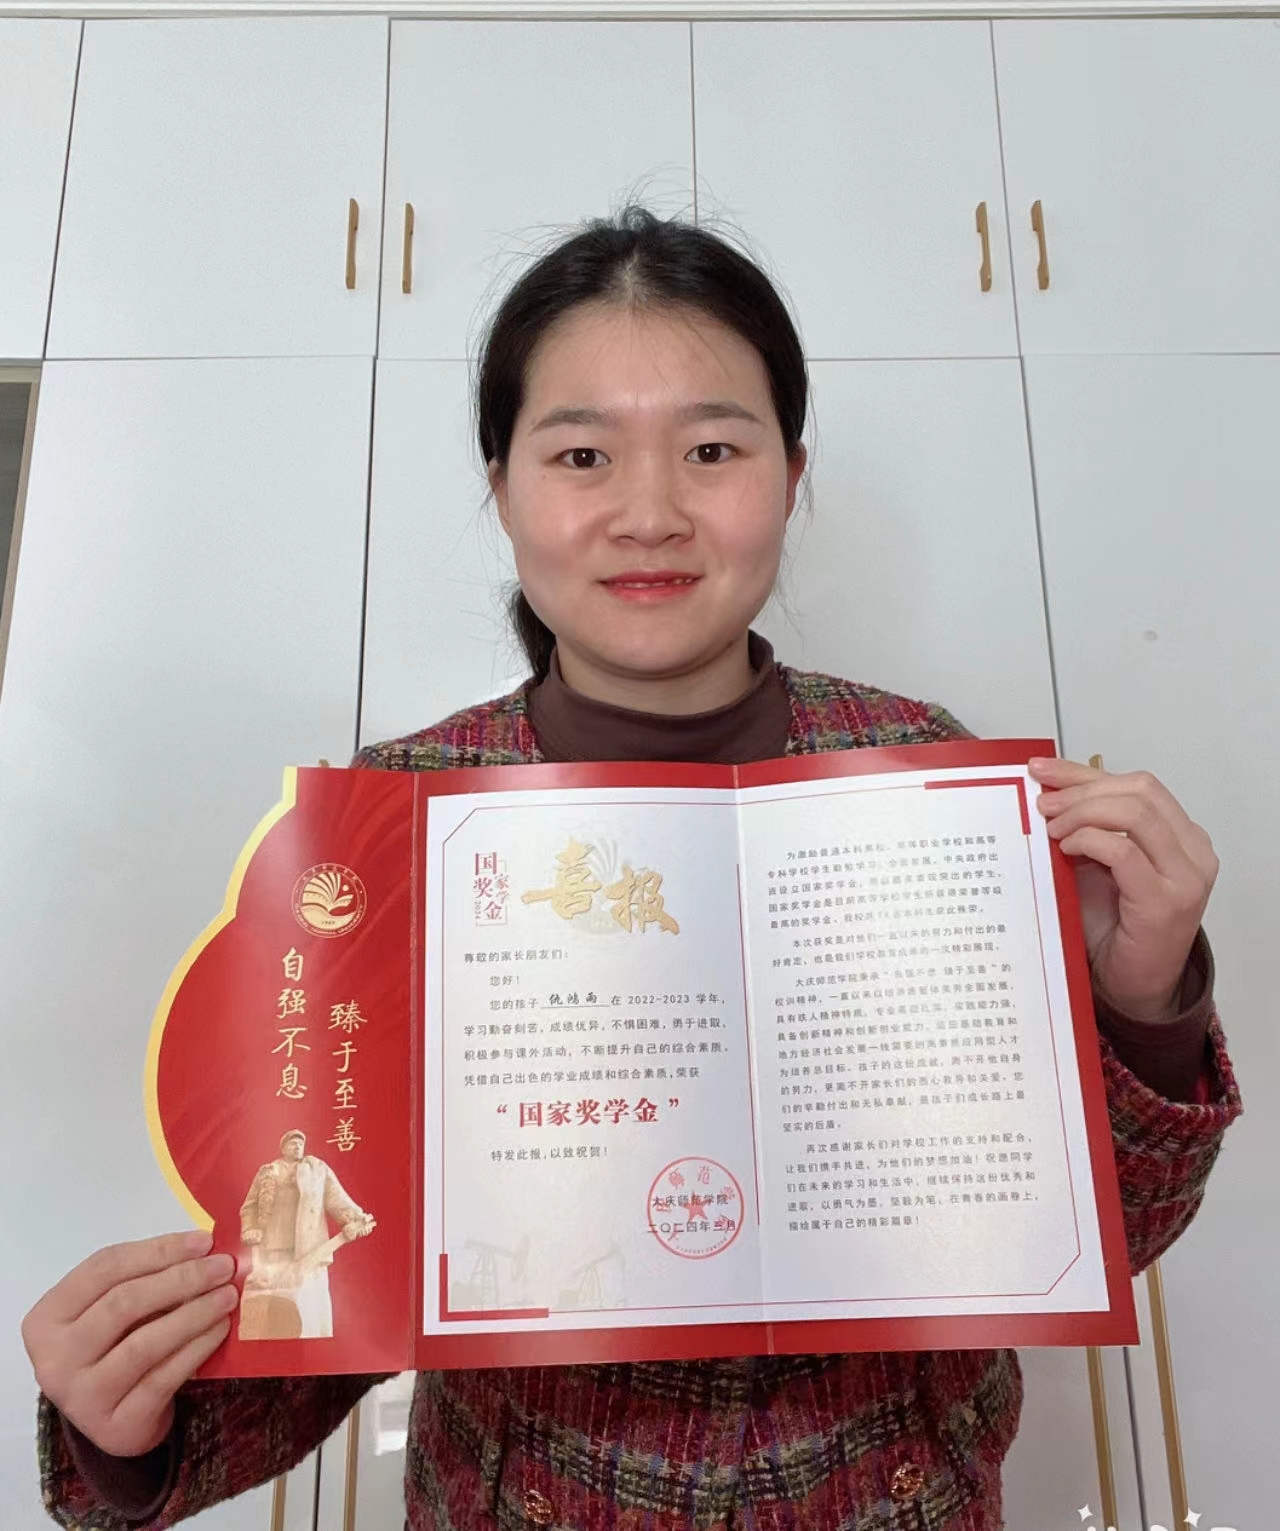 自强不息
臻于至善
国家奖学金
2024
喜报
尊敬的家长朋友们：
您好！
您的孩子 仇鸿雨 在 2022-2023 学年，
学习勤奋刻苦，成绩优异，不惧困难，勇于进取，
积极参与课外活动，不断提升自己的综合素质。
凭借自己出色的学业成绩和综合素质，荣获
“国家奖学金”
特发此报，以致祝贺！
大庆师范学院
二〇二四年三月
为激励普通本科高校、高等职业学校和高等
专科学校学生勤勉学习、全面发展，中央政府出
资设立国家奖学金，用以嘉奖表现突出的学生。
国家奖学金是目前高等学校学生所获得荣誉等级
最高的奖学金。我校共
名本科生获此殊荣。
本次获奖是对他们一直以来的努力和付出的最
好肯定，也是我们学校教育成果的一次精彩展现。
大庆师范学院秉承“自强不息 臻于至善”的
校训精神，一直以来以培养德智体美劳全面发展，
具有铁人精神特质，专业基础扎实，实践能力强，
具备创新精神和创新创业能力，适应基础教育和
地方经济社会发展一线需要的高素质应用型人才
为培养总目标。孩子的这份成就，离不开他自身
的努力，更离不开家长们的悉心教导和关爱。您
们的辛勤付出和无私奉献，是孩子们成长路上最
坚实的后盾。
再次感谢家长们对学校工作的支持和配合，
让我们携手共进，为他们的梦想加油！祝愿同学
们在未来的学习和生活中，继续保持这份优秀和
进取，以勇气为墨，坚毅为笔，在青春的画卷上，
描绘属于自己的精彩篇章！